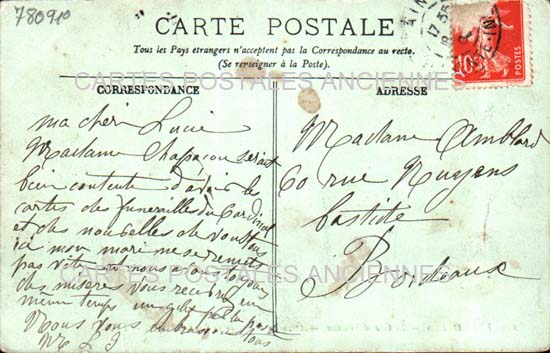 78090
CARTE POSTALE
Tous les Pays étrangers n'acceptent pas la Correspondance au recto.
(Se renseigner à la Poste).
CARTES POSTALES ANCIENNES
CORRESPONDANCE
ma cher Lucie
Madame Chapacou serait
bien contente d'avoir de
cartes des funerailles du Cardinal
et des nouvelles de vous tous
ici mon mari ne se remet
pas vite et nous avons toujours
des miseres vous recevrez en
meme temps un colis postal
Nous vous embrassons tous
ADRESSE
Madame Amblard
60 rue Nuyens
bastide
Bordeaux
CARTES POSTALES ANCIENNES
17 35
10
POSTES